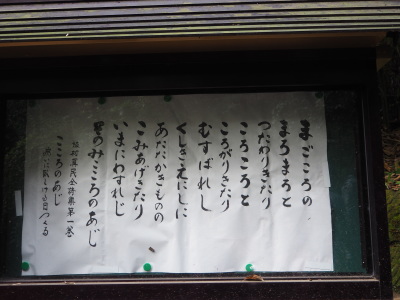 まごころの
まろまろと
つたわりきたり
ころころと
ころがりきたり
むすばれし
くしきえにしに
あたたかきものの
こみあげきたり
いまにわすれじ
そのみこころのあじ
坂村真民全詩集第一巻
こころのあじ